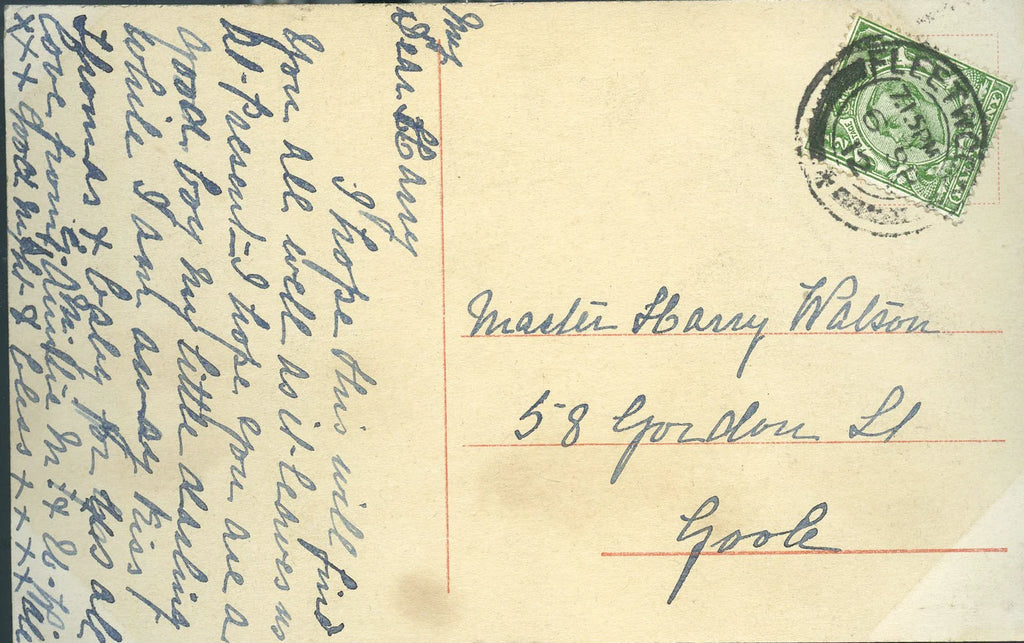 Dear Harry
I hope this will find
you all well as it leaves us
at present I hope you are a
good boy my little darling
while I am away kiss
Thomas & baby for
love from Auntie
xxx good night & bless
Master Harry Watson
58 Gordon St
Goole
FLEETWOOD
7.15 PM